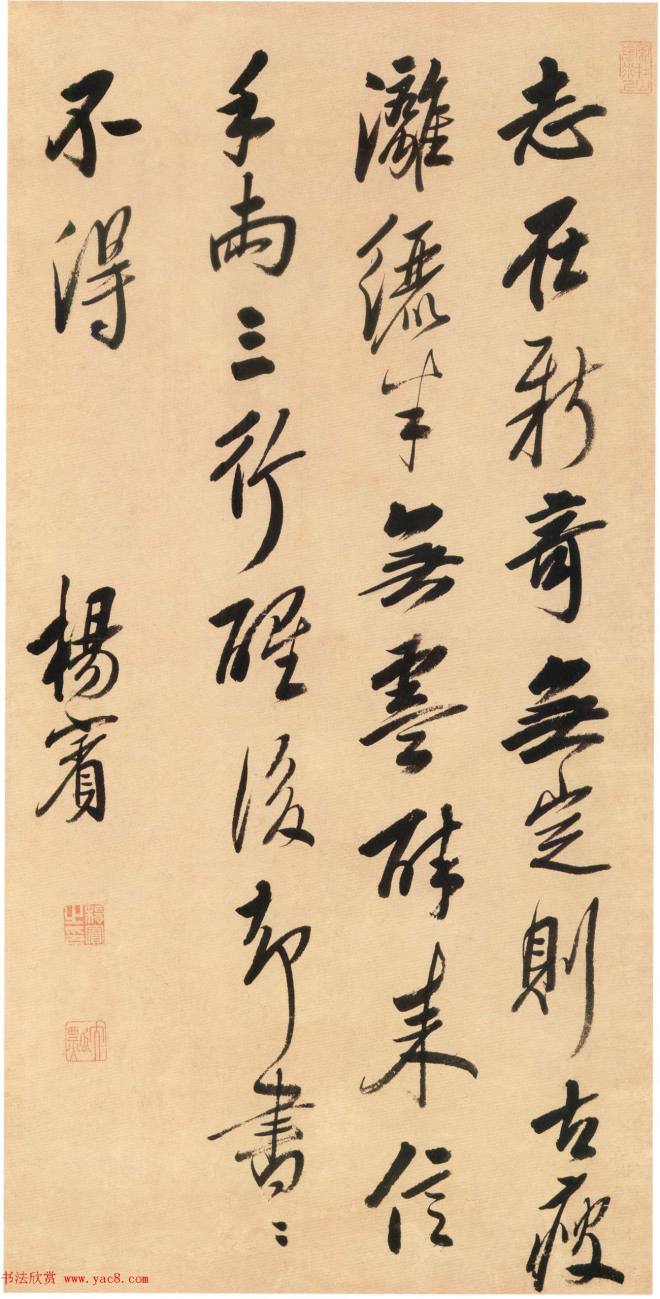 志在新奇無定則古瘦
灕纚半無墨醉来信
手兩三行醒後却書〻
不得
楊賓
楊賓之印
书法欣赏 www.yac8.com